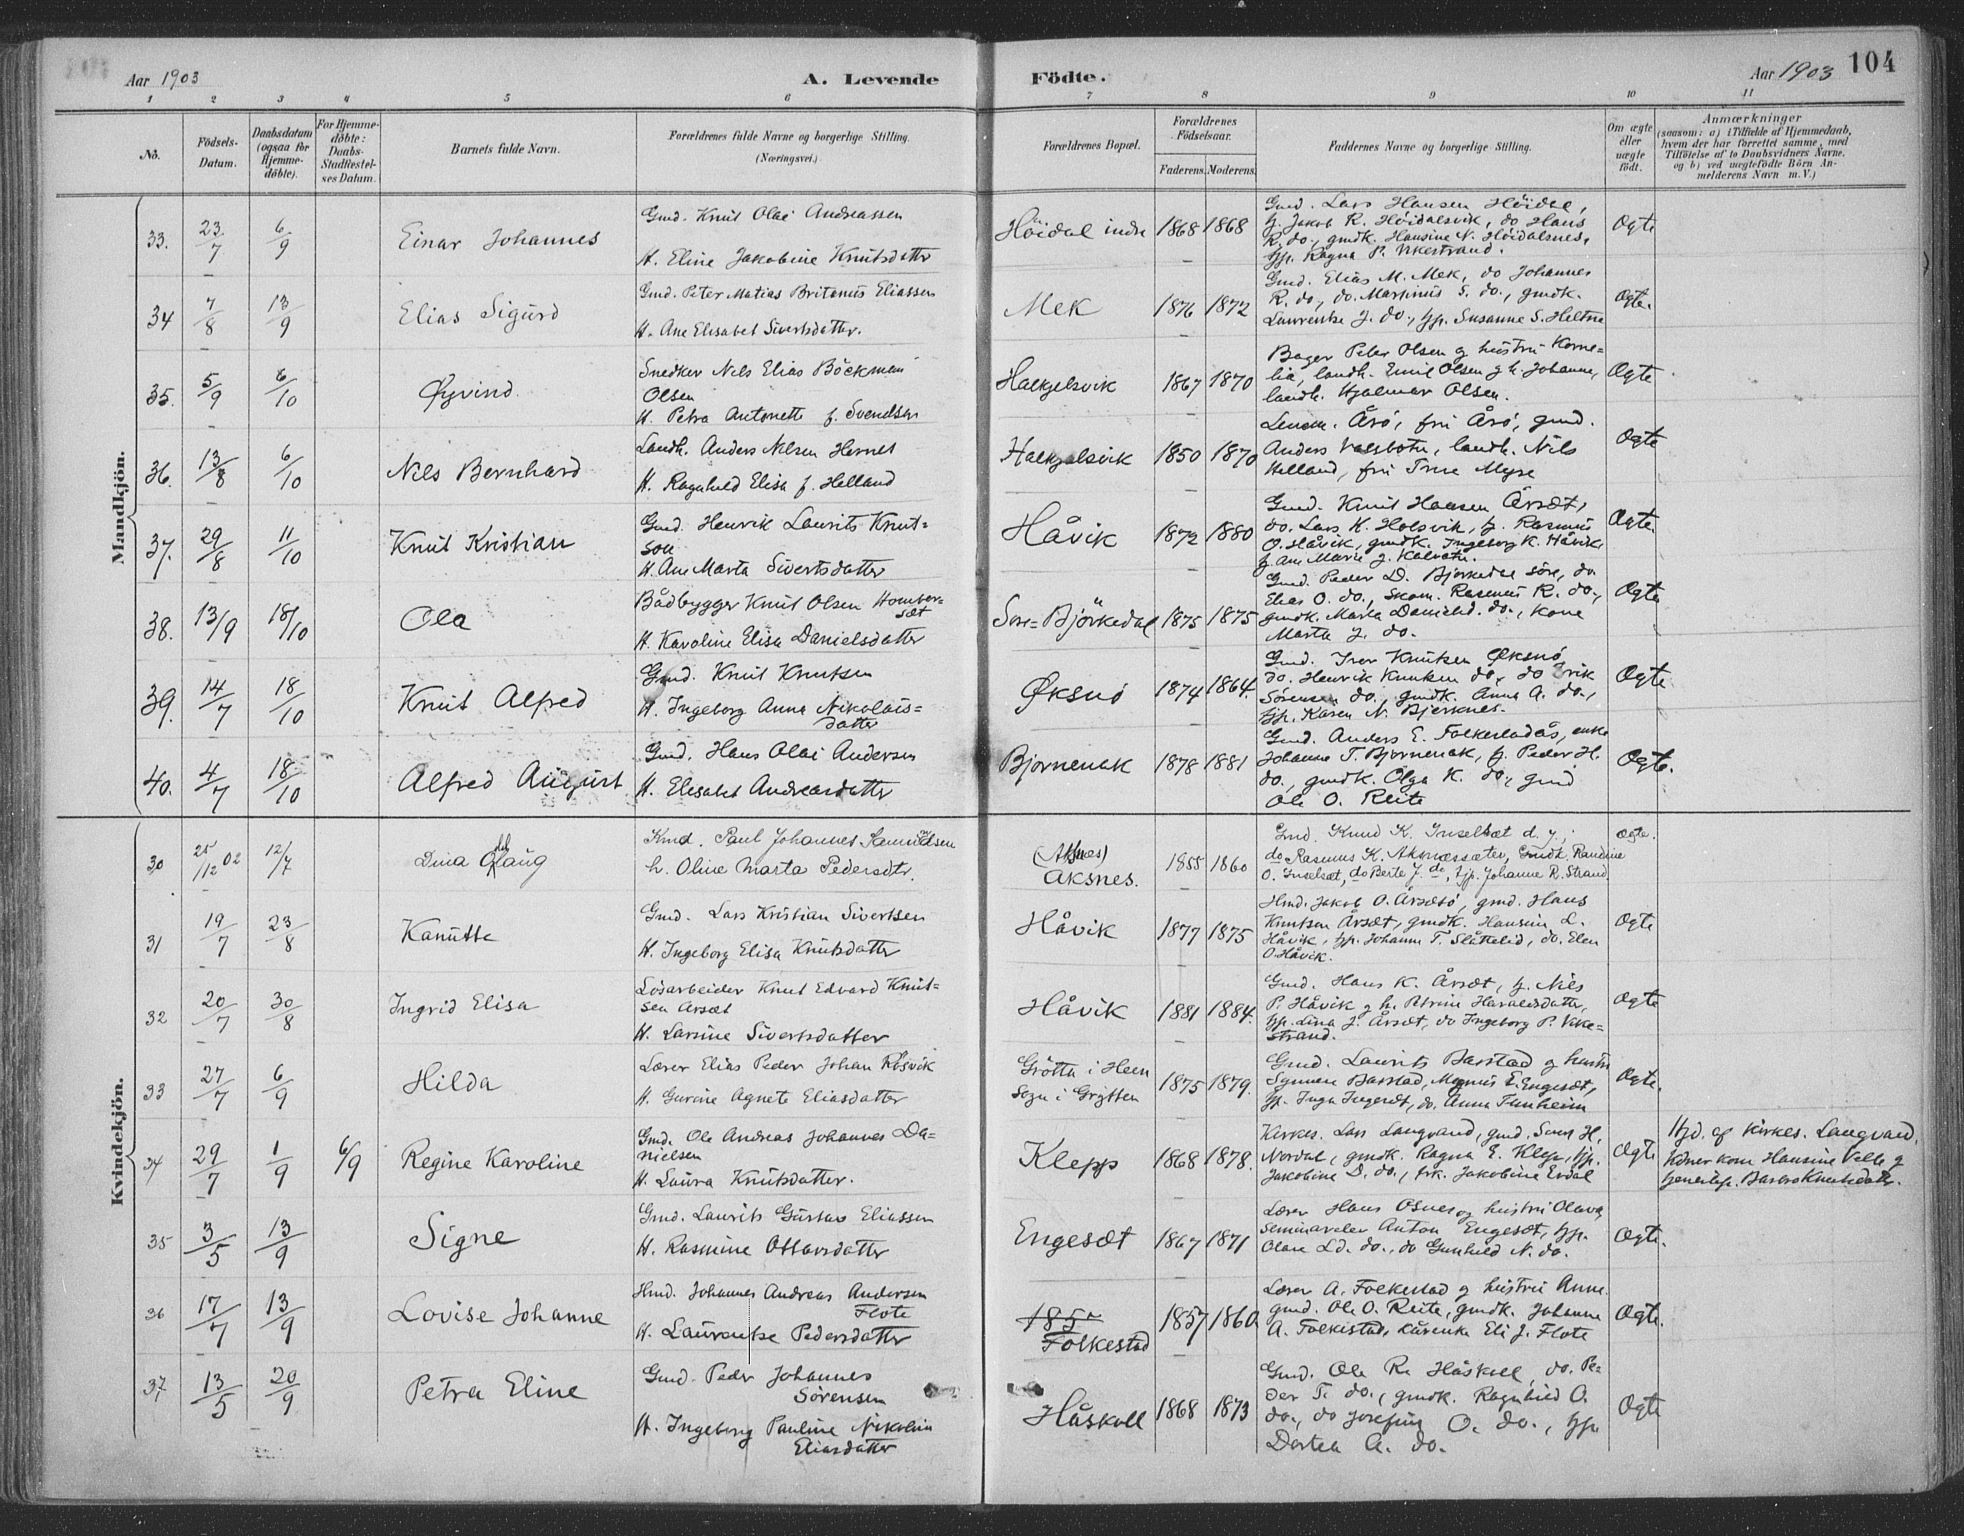 Aar 1903
A. Levende
Födte.
Aar 1903
104
1 2 3 4 5 6 7 8 9 10 11
No.
Födsels-
Datum.
Daabsdatum
(ogsaa for
Hjemme-
döbte).
For Hjemme-
döbte:
Daabs-
Stadfæstel-
ses Datum.
Barnets fulde Navn.
Forældrenes fulde Navne og borgerlige Stilling.
(Næringsvei.)
Forældrenes Bopæl.
Forældrenes
Födselsaar.
Faderens. Moderens.
Faddernes Navne og borgerlige Stilling.
Om ægte
eller
uægte
födt.
Anmærkninger
(saasom: a) i Tilfælde af Hjemmedaab,
hvem der har forrettet samme, med
Tilföielse af to Daabsvidners Navne,
og b) ved uægtefödte Börn An-
melderens Navn m. V.)
Mandkjön.
33. 23/7 6/9 Einar Johannes
Gmd. Knut Olai Andreassen
H. Eline Jakobine Knutsdatter
Höidal indre 1868 1868
Gmd. Lars Hansen Höidal,
g. Jakob R. Höidalsvik, do Hans
R. do., gmdk. Hansine N. Höidalsnes,
pp. Ragna P. Vikestrand.
Ægte
34 7/8 13/9 Elias Sigurd
Gmd. Peter Matias Britanus Eliassen
H. Ane Elisabet Sivertsdatter.
Mek 1876 1872
Gmd. Elias M. Mek, do Johannes
R. do., do. Martinus S. do., gmdk.
Laurentse J. do., pp. Susanne S. Heltne
Ægte.
35. 5/9 6/10 Øyvind
Snedker Nils Elias Böckman
Olsen
H. Petra Antonette f. Svendsen
Halkjelsvik 1867 1870
Bager Peter Olsen og hustru Korne=
lia, landh. Emil Olsen og h. Johanne,
landh. Hjalmar Olsen.
Ægte
36. 13/8 6/10 Nils Bernhard
Landh. Anders Nilsen Hernes
H. Ragnhild Elisa f. Helland
Halkjelsvik 1850 1870
Lensm. Årö, fru Årö, gmd.
Anders Valsbotn, landh. Nils
Helland, fru Trine Myre
Ægte
37. 29/8 11/10 Knut Kristian
Gmd. Henrik Laurits Knut=
son
H. Ane Marta Sivertsdatter
Håvik 1872 1880
Gmd. Knut Hansen Årset,
do. Lars K. Holsvik, g. Rasmus
O. Håvik, gmdk. Ingeborg K. Håvik
g. Ane Marie J. Kalvatn.
Ægte
38. 13/9 18/10 Ola
Bådbygger Knut Olsen Homber=
sæt
H. Karoline Elisa Danielsdatter
Søre=Björkedal 1875 1875
Gmd. Peder D. Bjørkedal söre, do.
Elias O. do., Skom. Rasmus R. do.,
gmdk. Marta Danielsd. do., kone
Marta J. do.
Ægte
39. 14/7 18/10 Knut Alfred
Gmd. Knut Knutsen
H. Ingeborg Anna Nikolais=
datter
Øksnö 1874 1864.
Gmd. Iver Knutsen Øksnö
do. Henrik Knutsen do., do
Sörensen do., gmdk. Anna A. do.,
pp. Karen N. Bjerknes.
Ægte
40. 4/7 18/10 Alfred August
Gmd. Hans Olai Andersen
H. Elisabet Andreasdatter
Bjørnenak 1878 1881
Gmd. Anders E. Folkestadås, enke
Johanne T. Bjørnenak, g. Peder H.
do., gmdk. Olga K. do., gmd
Ole O. Reite
Ægte.
Kvindekjön.
30 25/12 02 12/7 Dina Olaug
Kmd. Paul Johannes Samuelsen
h. Oline Marta Pedersdtr.
(Aksnes)
Aksnes. 1855 1860
Gmd. Knud K. Inselset d. y.,
do Rasmus K. Aksnessæter, Gmdk. Randine
O. Inselset, do Berte J. do, pp. Johanne R. Strand
Ægte.
31 19/7 23/8 Kanutte
Gmd. Lars Kristian Sivertsen
H. Ingeborg Elisa Knutsdatter
Håvik 1877 1875
Hmd. Jakob O. Årsetö, gmd. Hans
Knutsen Årset, gmdk. Hansine L.
Håvik, pp. Johanne T. Slåttelid, do. Elen
O. Håvik.
Ægte
32 20/7 30/8 Ingrid Elisa
Løsarbeider Knut Edvard Knut=
sen Årset
H. Larsine Sivertsdatter
Håvik 1881 1884.
Gmd. Hans K. Årset, g. Nils
P. Håvik og h. Petrine Haraldsdatter,
pp. Lina J. Årset, do Ingeborg P. Vike=
strand.
Ægte
33 27/7 6/9 Hilda
Lærer Elias Peder Johan Røsvik
H. Gurine Agnete Eliasdatter
Grötta i Heen
Sogn i Grytten 1875 1879.
Gmd. Laurits Barstad og hustru
Synnøve Barstad, Magnus E. Engeset,
pp. Inga Engeset, do. Anna Tunheim
Ægte.
34 29/7 1/9 6/9 Regine Karoline
Gmd. Ole Andreas Johannes Da=
nielsen
H. Laura Knutsdatter.
Klepp 1868 1878.
Kirkes. Lars Langvand, gmd. Sivert H.
Nordal, gmdk. Ragna E. Klep, pp.
Jakobine D. do., frk. Jakobine Erdal
Ægte
Hjd. af kirkes. Langvand.
Vidner kone Hansine Velle og
Barbro Knutsdatter.
35 3/5 13/9 Signe
Gmd. Laurits Gustav Eliassen
H. Rasmine Ottarsdatter
Engesæt 1867 1871
Lærer Hans Osnes og hustru Olava,
Seminarelev Anton Engesæt, pp.
Olave Ld. do., do Gunhild N. do.
Ægte.
36 17/7 13/9 Lovise Johanne
Hmd. Johannes Andreas Andersen
Flote
H. Laurentse Pedersdatter
185
Folkestad 1857 1860
Lærer A. Folkestad og hustru Anne
gmd. Ole O. Reite, gmdk. Johanne
A. Folkestad, kårenke Eli J. Flote
Ægte.
37 13/5 20/9 Petra Eline
Gmd. Peder Johannes
Sörensen
H. Ingeborg Pauline Nikolin
Eliasdatter
Håskoll 1868 1873
Gmd. Ole R. Håskoll, do. Pe-
der T. do., gmdk. Ragnhild O.
do., do Josefine O. do., pp.
Dortea A. do.
Ægte